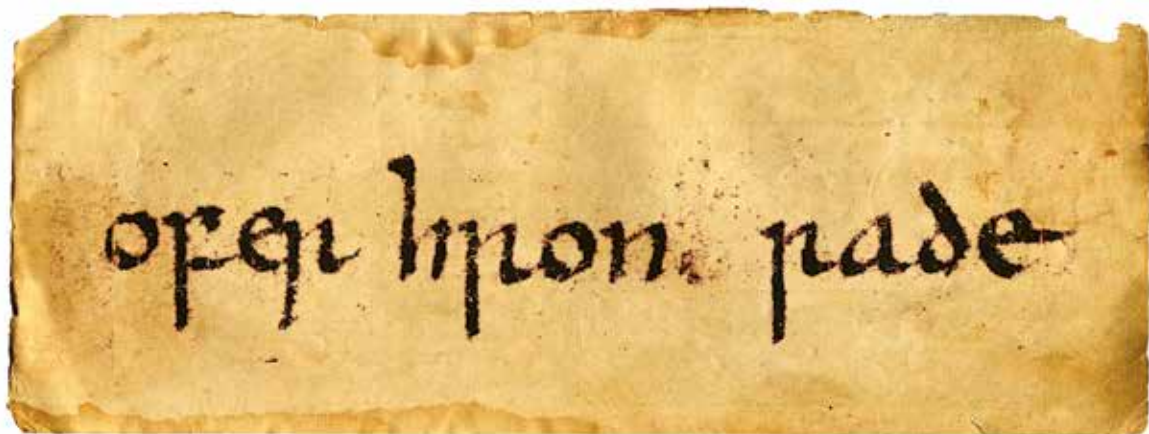 ofer hron rade